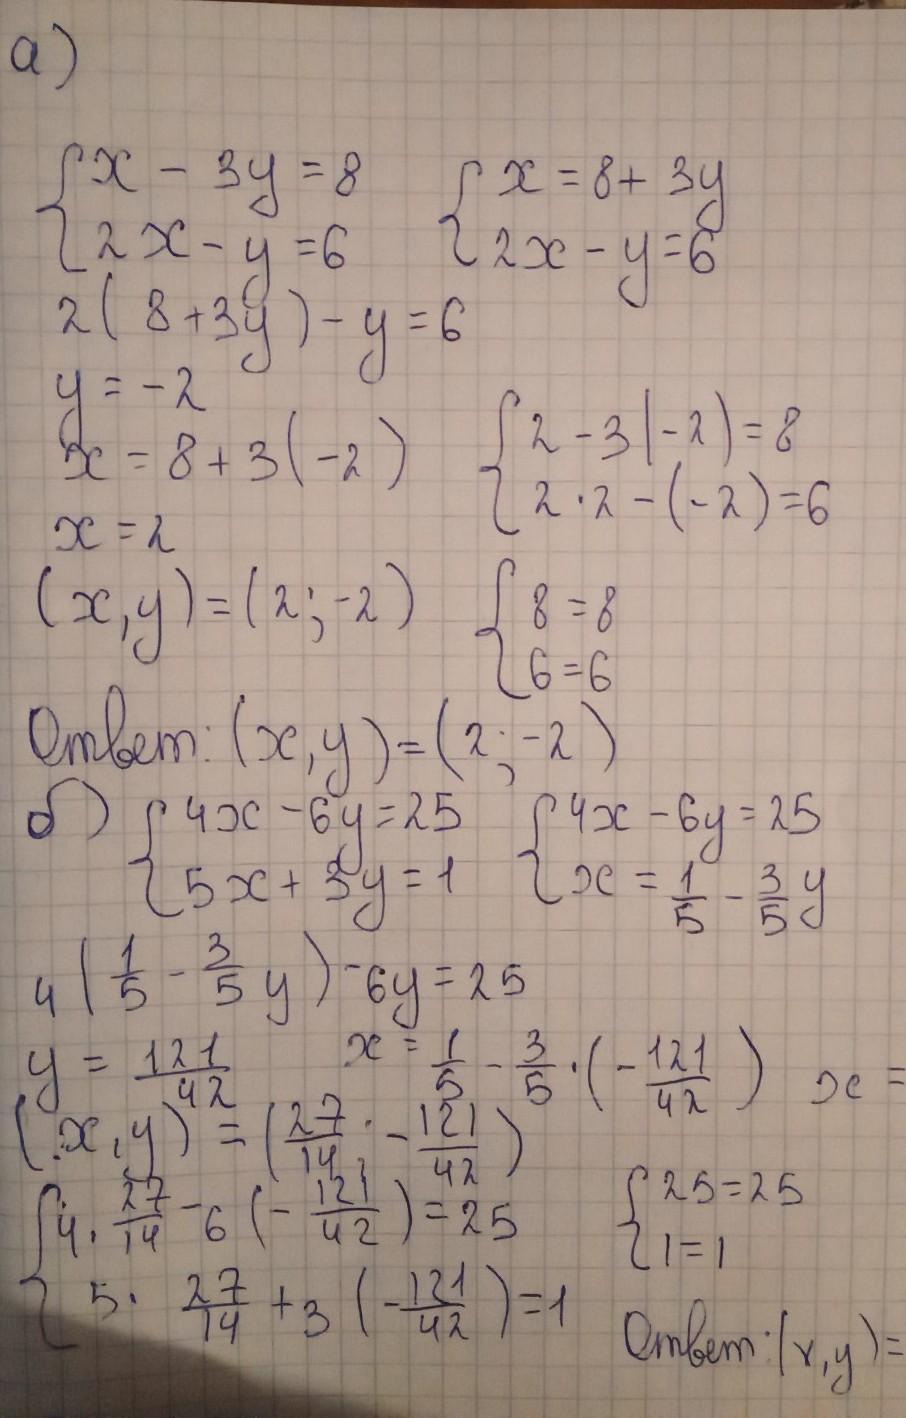 а)
{ x - 3y = 8    { x = 8 + 3y
{ 2x - y = 6    { 2x - y = 6
2( 8 + 3y ) - y = 6
y = -2
x = 8 + 3(-2)    { 2 - 3(-2) = 8
x = 2    { 2·2 - (-2) = 6
(x, y) = (2; -2)    { 8 = 8
{ 6 = 6
Ответ: (x, y) = (2; -2)
б) { 4x - 6y = 25    { 4x - 6y = 25
{ 5x + 3y = 1    { x = 1/5 - 3/5 y
4(1/5 - 3/5 y) - 6y = 25
y = 121/42    x = 1/5 - 3/5 · (-121/42)    x =
(x, y) = (27/14 ; -121/42)
{ 4 · 27/14 - 6(-121/42) = 25    { 25 = 25
{ 5 · 27/14 + 3(-121/42) = 1    { 1 = 1
Ответ: (x, y) =